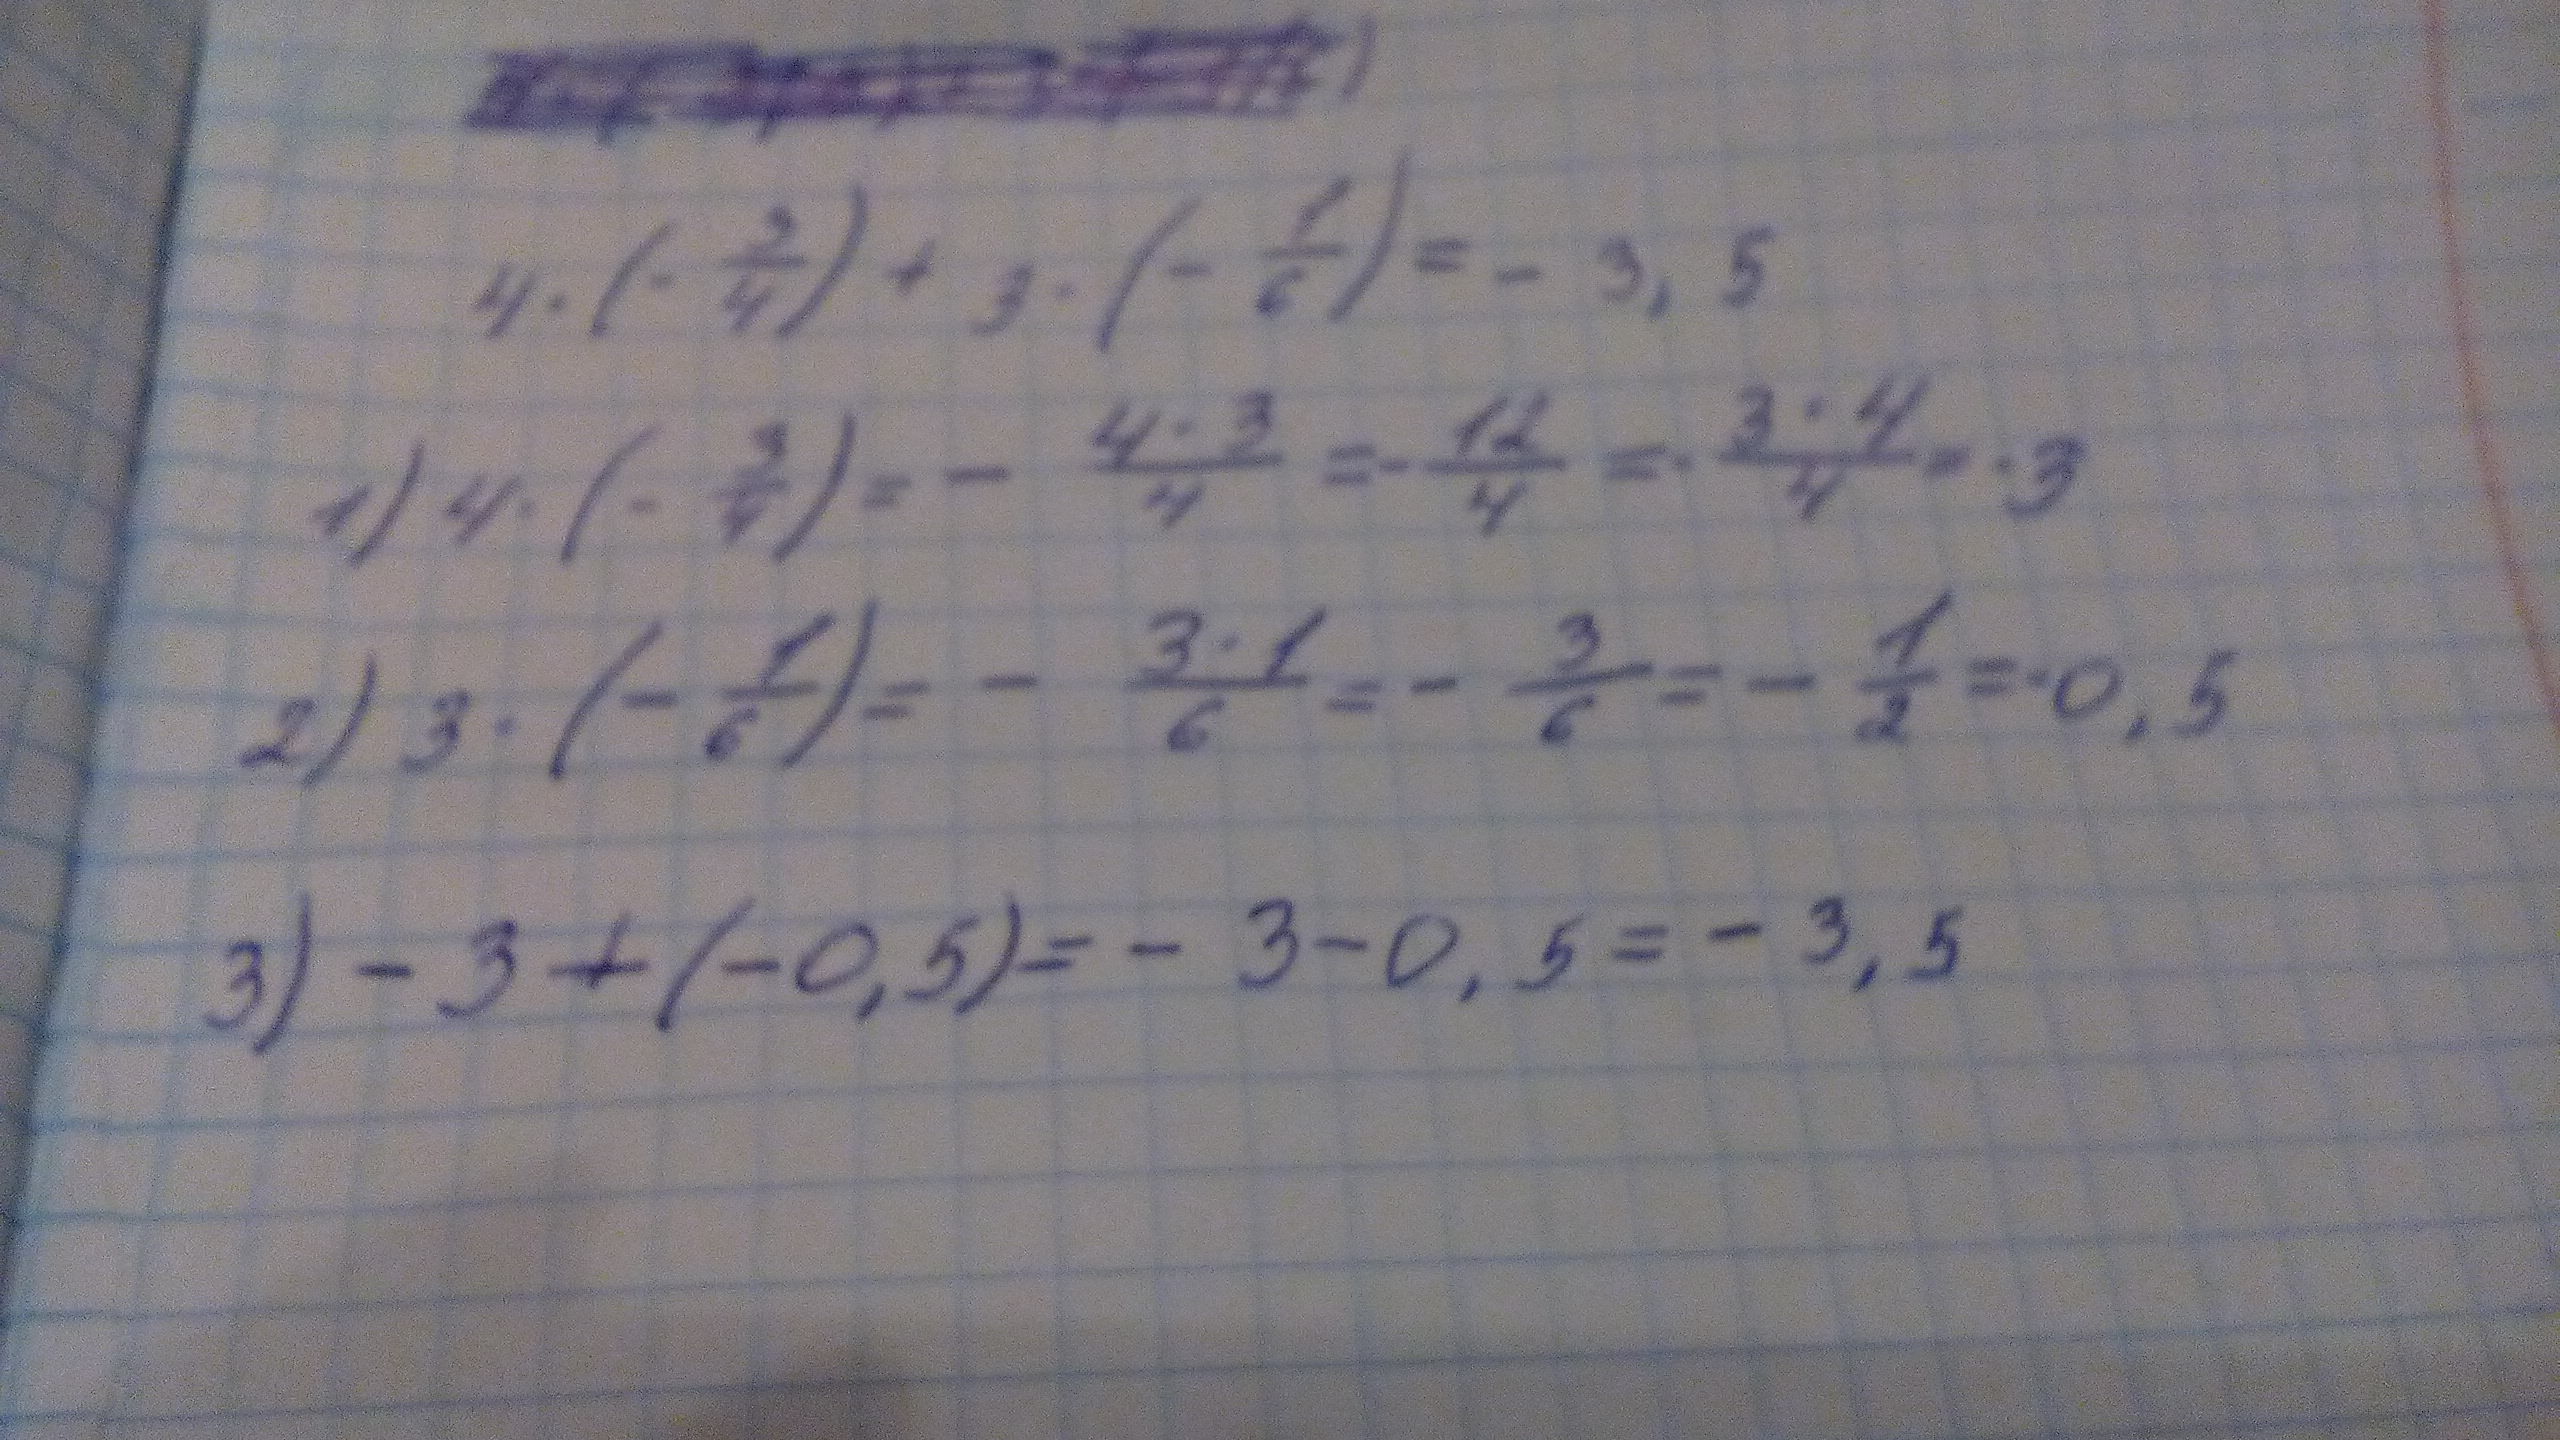 4·(-3/4)+3·(-1/6)=-3,5
1) 4·(-3/4)=-4·3/4=-12/4=-3·4/4=-3
2) 3·(-1/6)=-3·1/6=-3/6=-1/2=-0,5
3) -3+(-0,5)=-3-0,5=-3,5